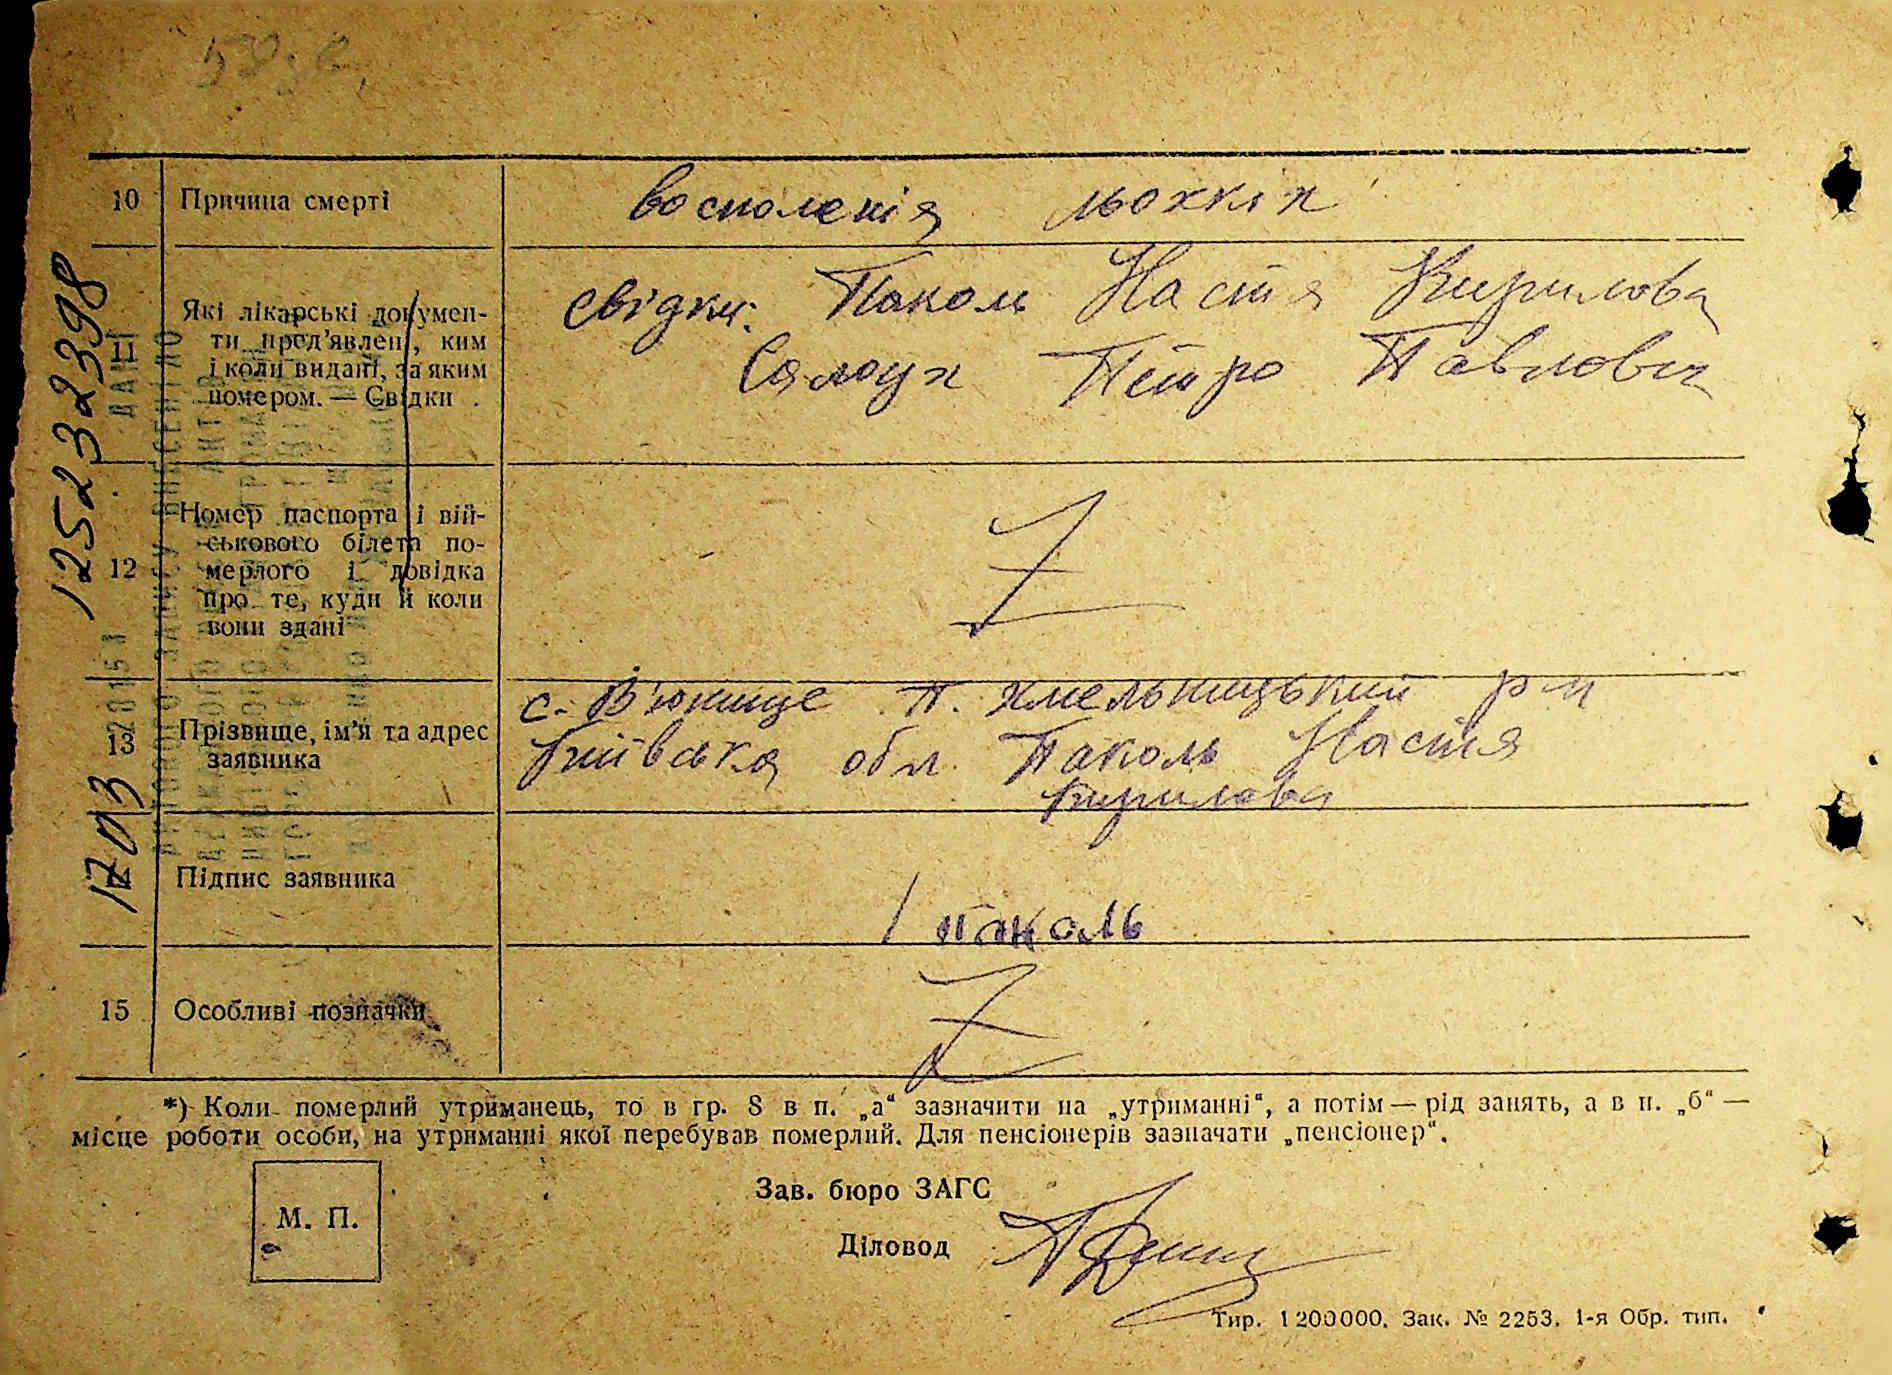 10 Причина смерті восполенія льохкіх
11 Які лікарські докумен-
ти пред'явлені, ким
і коли видані, за яким
номером. — Свідки
свідки: Паколь Настя Кирилова
Петро Павлович
12 Номер паспорта і вій-
ськового білета по-
мерлого і довідка
про те, куди й коли
вони здані
Z
13 Прізвище, ім'я та адрес
заявника
с. В'юнище П. Хмельницький р-н
Київська обл. Паколь Настя
Кирилова
14 Підпис заявника
паколь
15 Особливі позначки Z
*) Коли померлий утриманець, то в гр. 8 в п. „а“ зазначити на „утриманні“, а потім — рід занять, а в п. „б“ —
місце роботи особи, на утриманні якої перебував померлий. Для пенсіонерів зазначати „пенсіонер“.
М. П.
Зав. бюро ЗАГС
Діловод
Тир. 1200000. Зак. № 2253. 1-я Обр. тип.
125232398